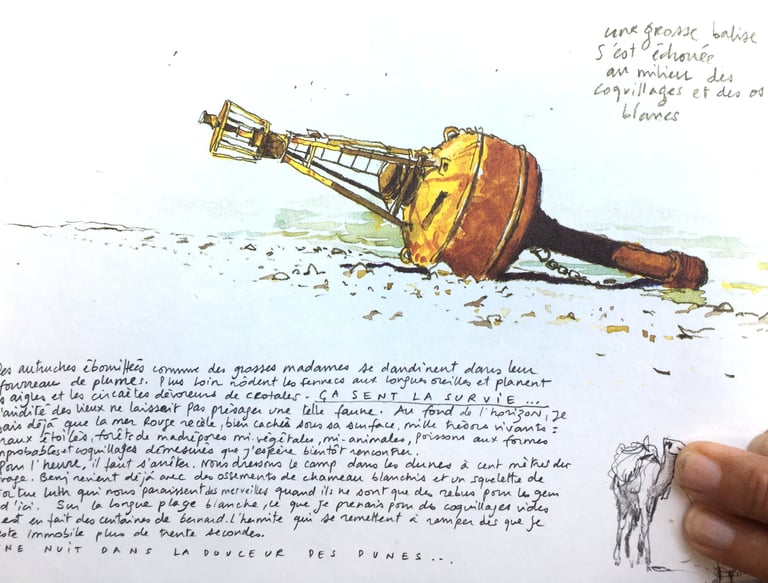 une grosse balise
s'est échouée
au milieu des
coquillages et des os
blancs
Des autruches ébouriffées comme des grosses madames se dandinent dans leur
fourreau de plumes. Plus loin rôdent les fennecs aux longues oreilles et planent
s aigles et les circaètes dévoreurs de crotales. ÇA SENT LA SURVIE...
'aridité des lieux ne laissait pas présager une telle faune. Au fond de l'horizon, je
sais déjà que la mer Rouge recèle, bien cachés sous sa surface, mille trésors vivants :
raux étoilés, forêts de madrépores mi-végétales, mi-animales, poissons aux formes
mprobables et coquillages démesurés que j'espère bientôt rencontrer.
Pour l'heure, il faut s'arrêter. Nous dressons le camp dans les dunes à cent mètres du
ivage. Benj revient déjà avec des ossements de chameau blanchis et un squelette de
tortue luth qui nous paraissent des merveilles quand ils ne sont que des rebus pour les gens
d'ici. Sur la longue plage blanche, ce que je prenais pour des coquillages vides
est en fait des centaines de bernard-l'hermite qui se remettent à ramper dès que je
este immobile plus de trente secondes.
NE NUIT DANS LA DOUCEUR DES DUNES...